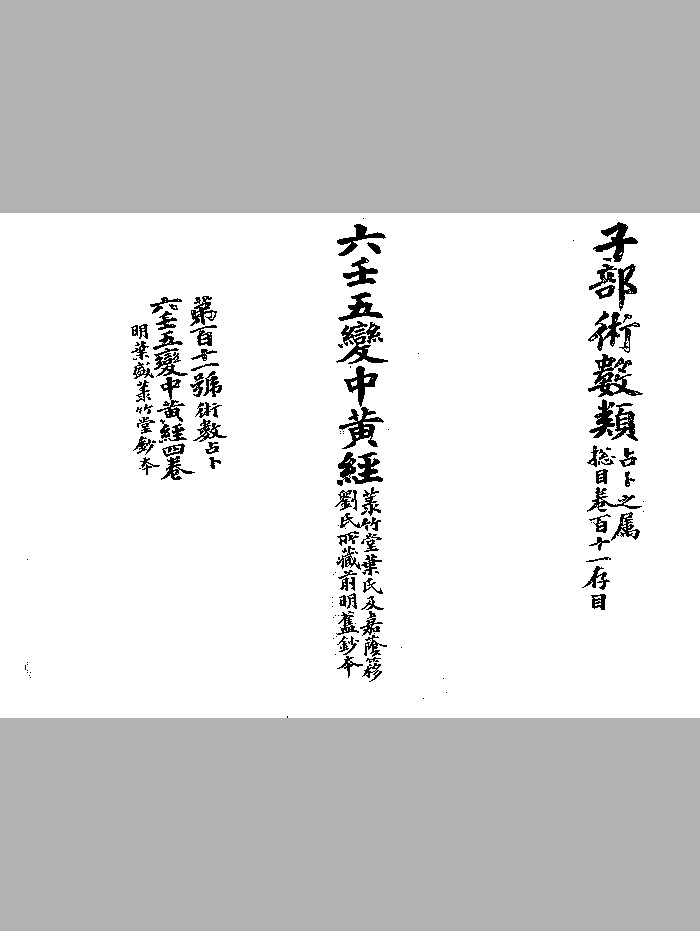 子部術數類
占卜之属
总目卷百十一存目
六壬五變中黄經
菉竹堂葉氏及嘉蔭簃
劉氏所藏前明舊鈔本
苐百十一號術數占卜
六壬五變中黄經四卷
明葉盛菉竹堂鈔本